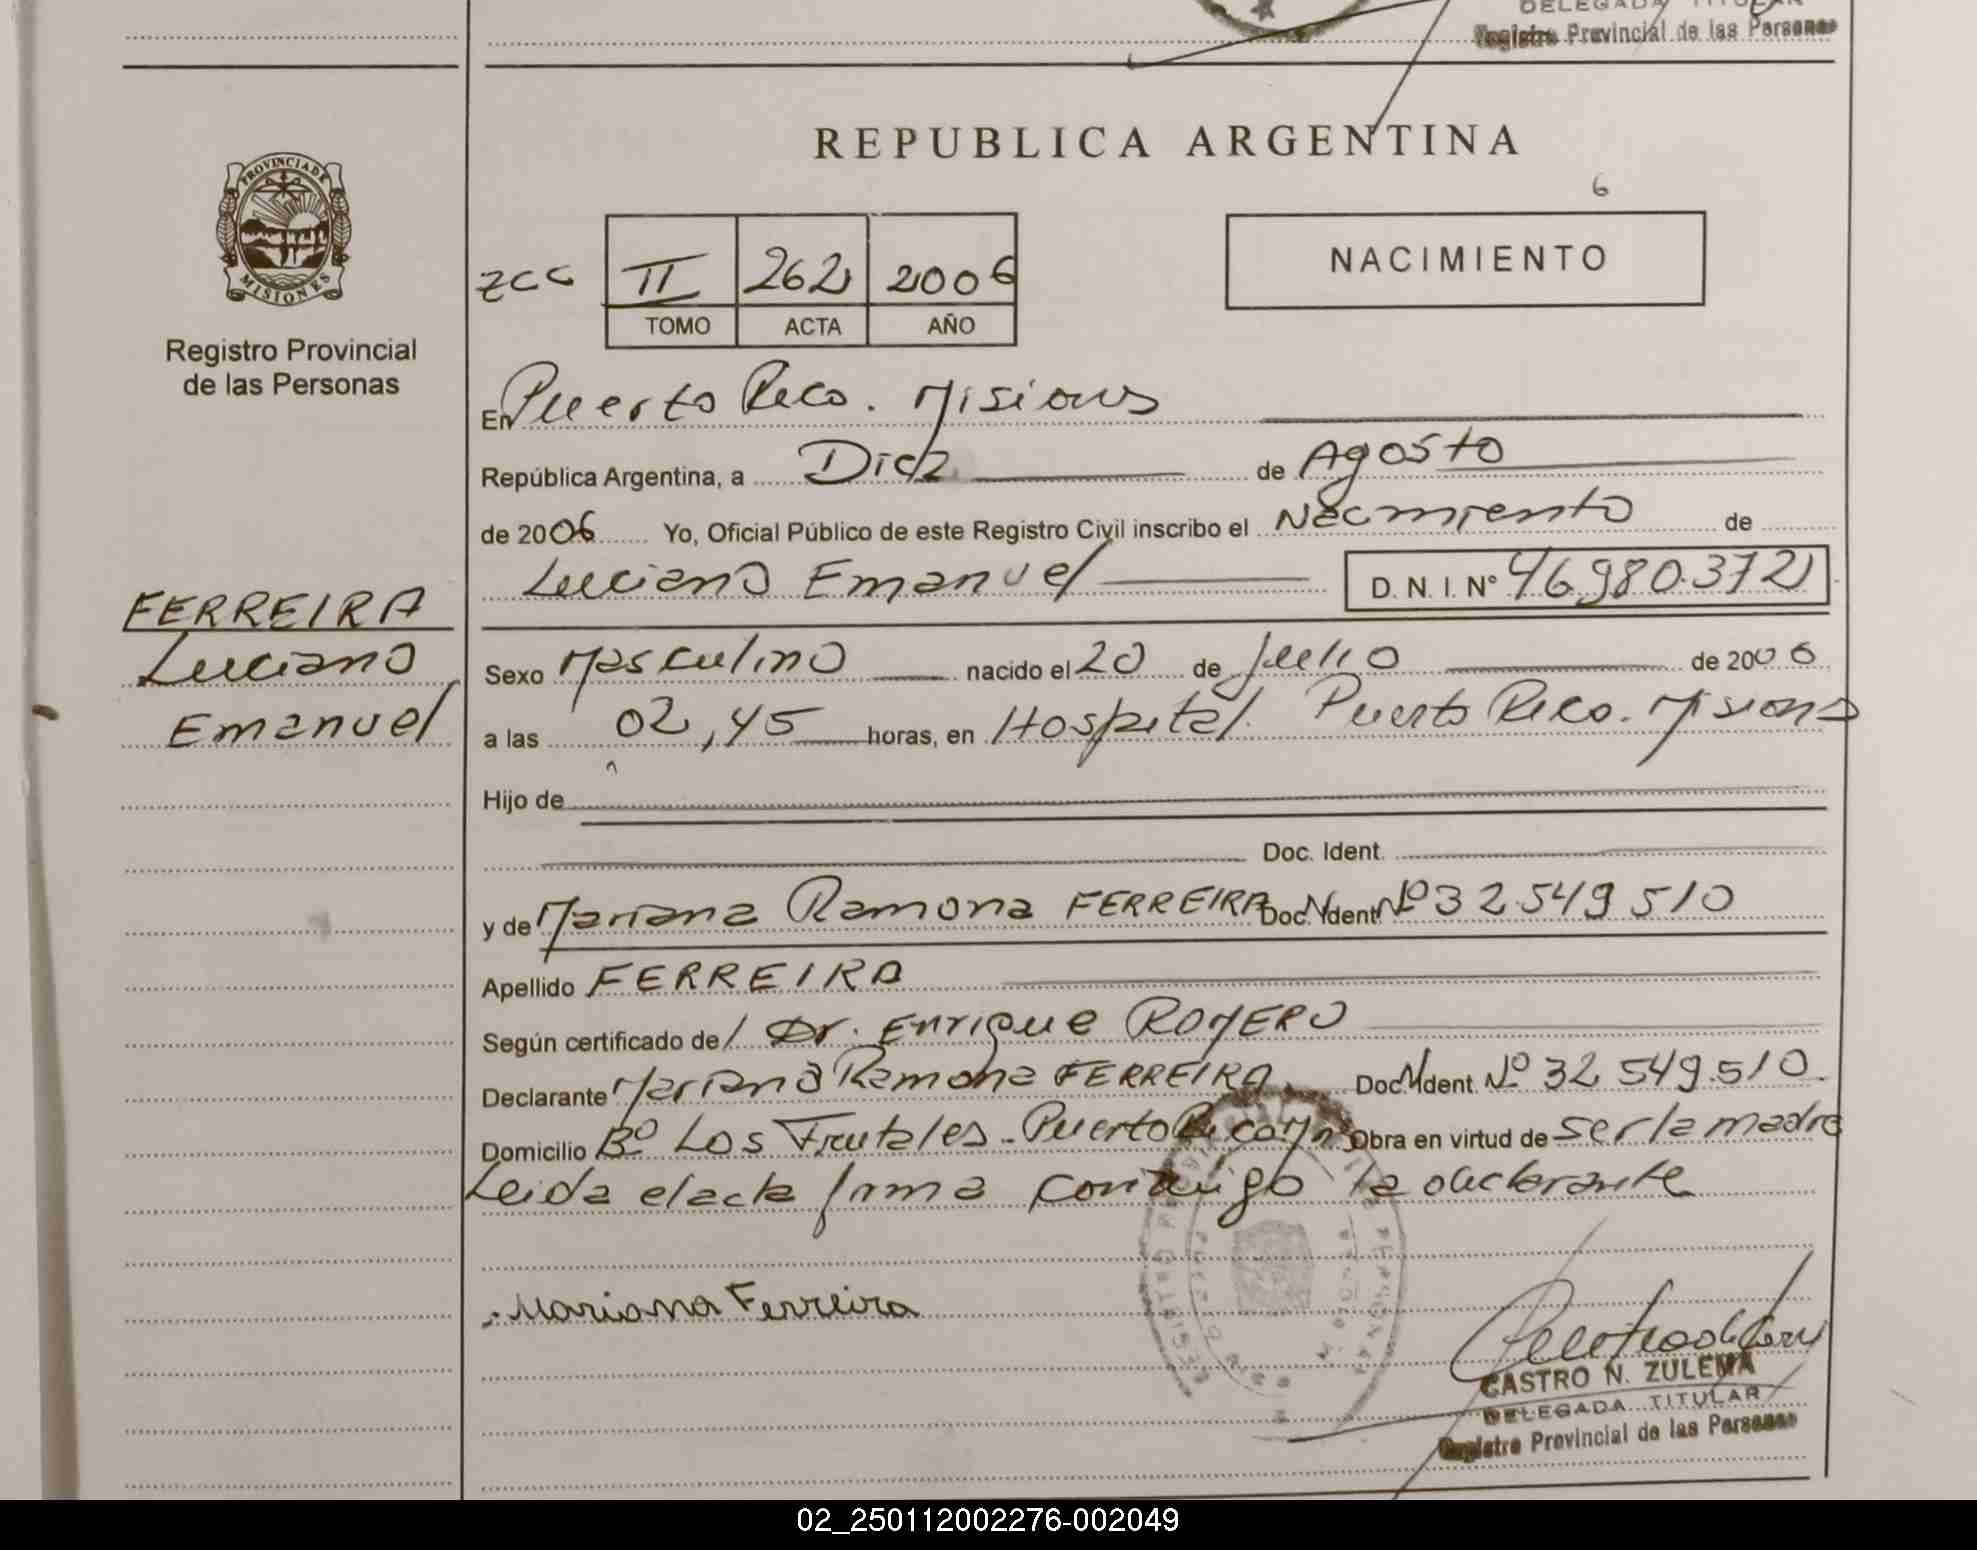 DELEGADA TITULAR
Registro Provincial de las Personas
REPUBLICA ARGENTINA
6
PROVINCIA DE
MISIONES
Registro Provincial
de las Personas
II 262 2006
TOMO ACTA AÑO
NACIMIENTO
En Puerto Rico. Misiones
República Argentina, a Diez de Agosto
de 2006 Yo, Oficial Público de este Registro Civil inscribo el Nacimiento de
Luciano Emanuel D.N.I. Nº 46.980.372
FERREIRA
Luciano
Emanuel
Sexo Masculino nacido el 20 de Julio de 2006
a las 02,45 horas, en Hospital. Puerto Rico. Misiones
Hijo de
Doc. Ident.
y de Mariana Ramona FERREIRA Doc. Ident. Nº 32.549.510
Apellido FERREIRA
Según certificado de Dr. Enrique ROMERO
Declarante Mariana Ramona FERREIRA Doc. Ident. Nº 32.549.510.
Domicilio Bº Los Frutales - Puerto Rico Mnes Obra en virtud de ser la madre
Leida el acta firma conmigo la declarante
Mariana Ferreira
CASTRO N. ZULEMA
DELEGADA TITULAR
Registro Provincial de las Personas
02_250112002276-002049